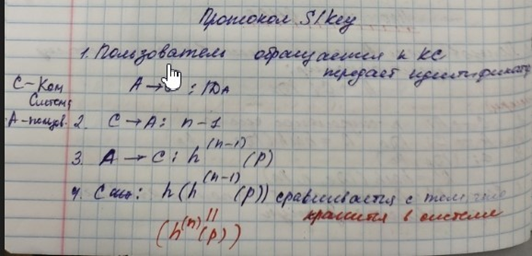 Протокол S/Key
1. Пользователь обращается к КС
передает идентификато
С – Ком
Система
А → С : IDA
А – пользов.
2. С → А : n-1
3. А → С : h^(n-1) (P)
4. С : h(h^(n-1) (P)) сравнивается с тем что
хранится в системе
(h^(n) (P))